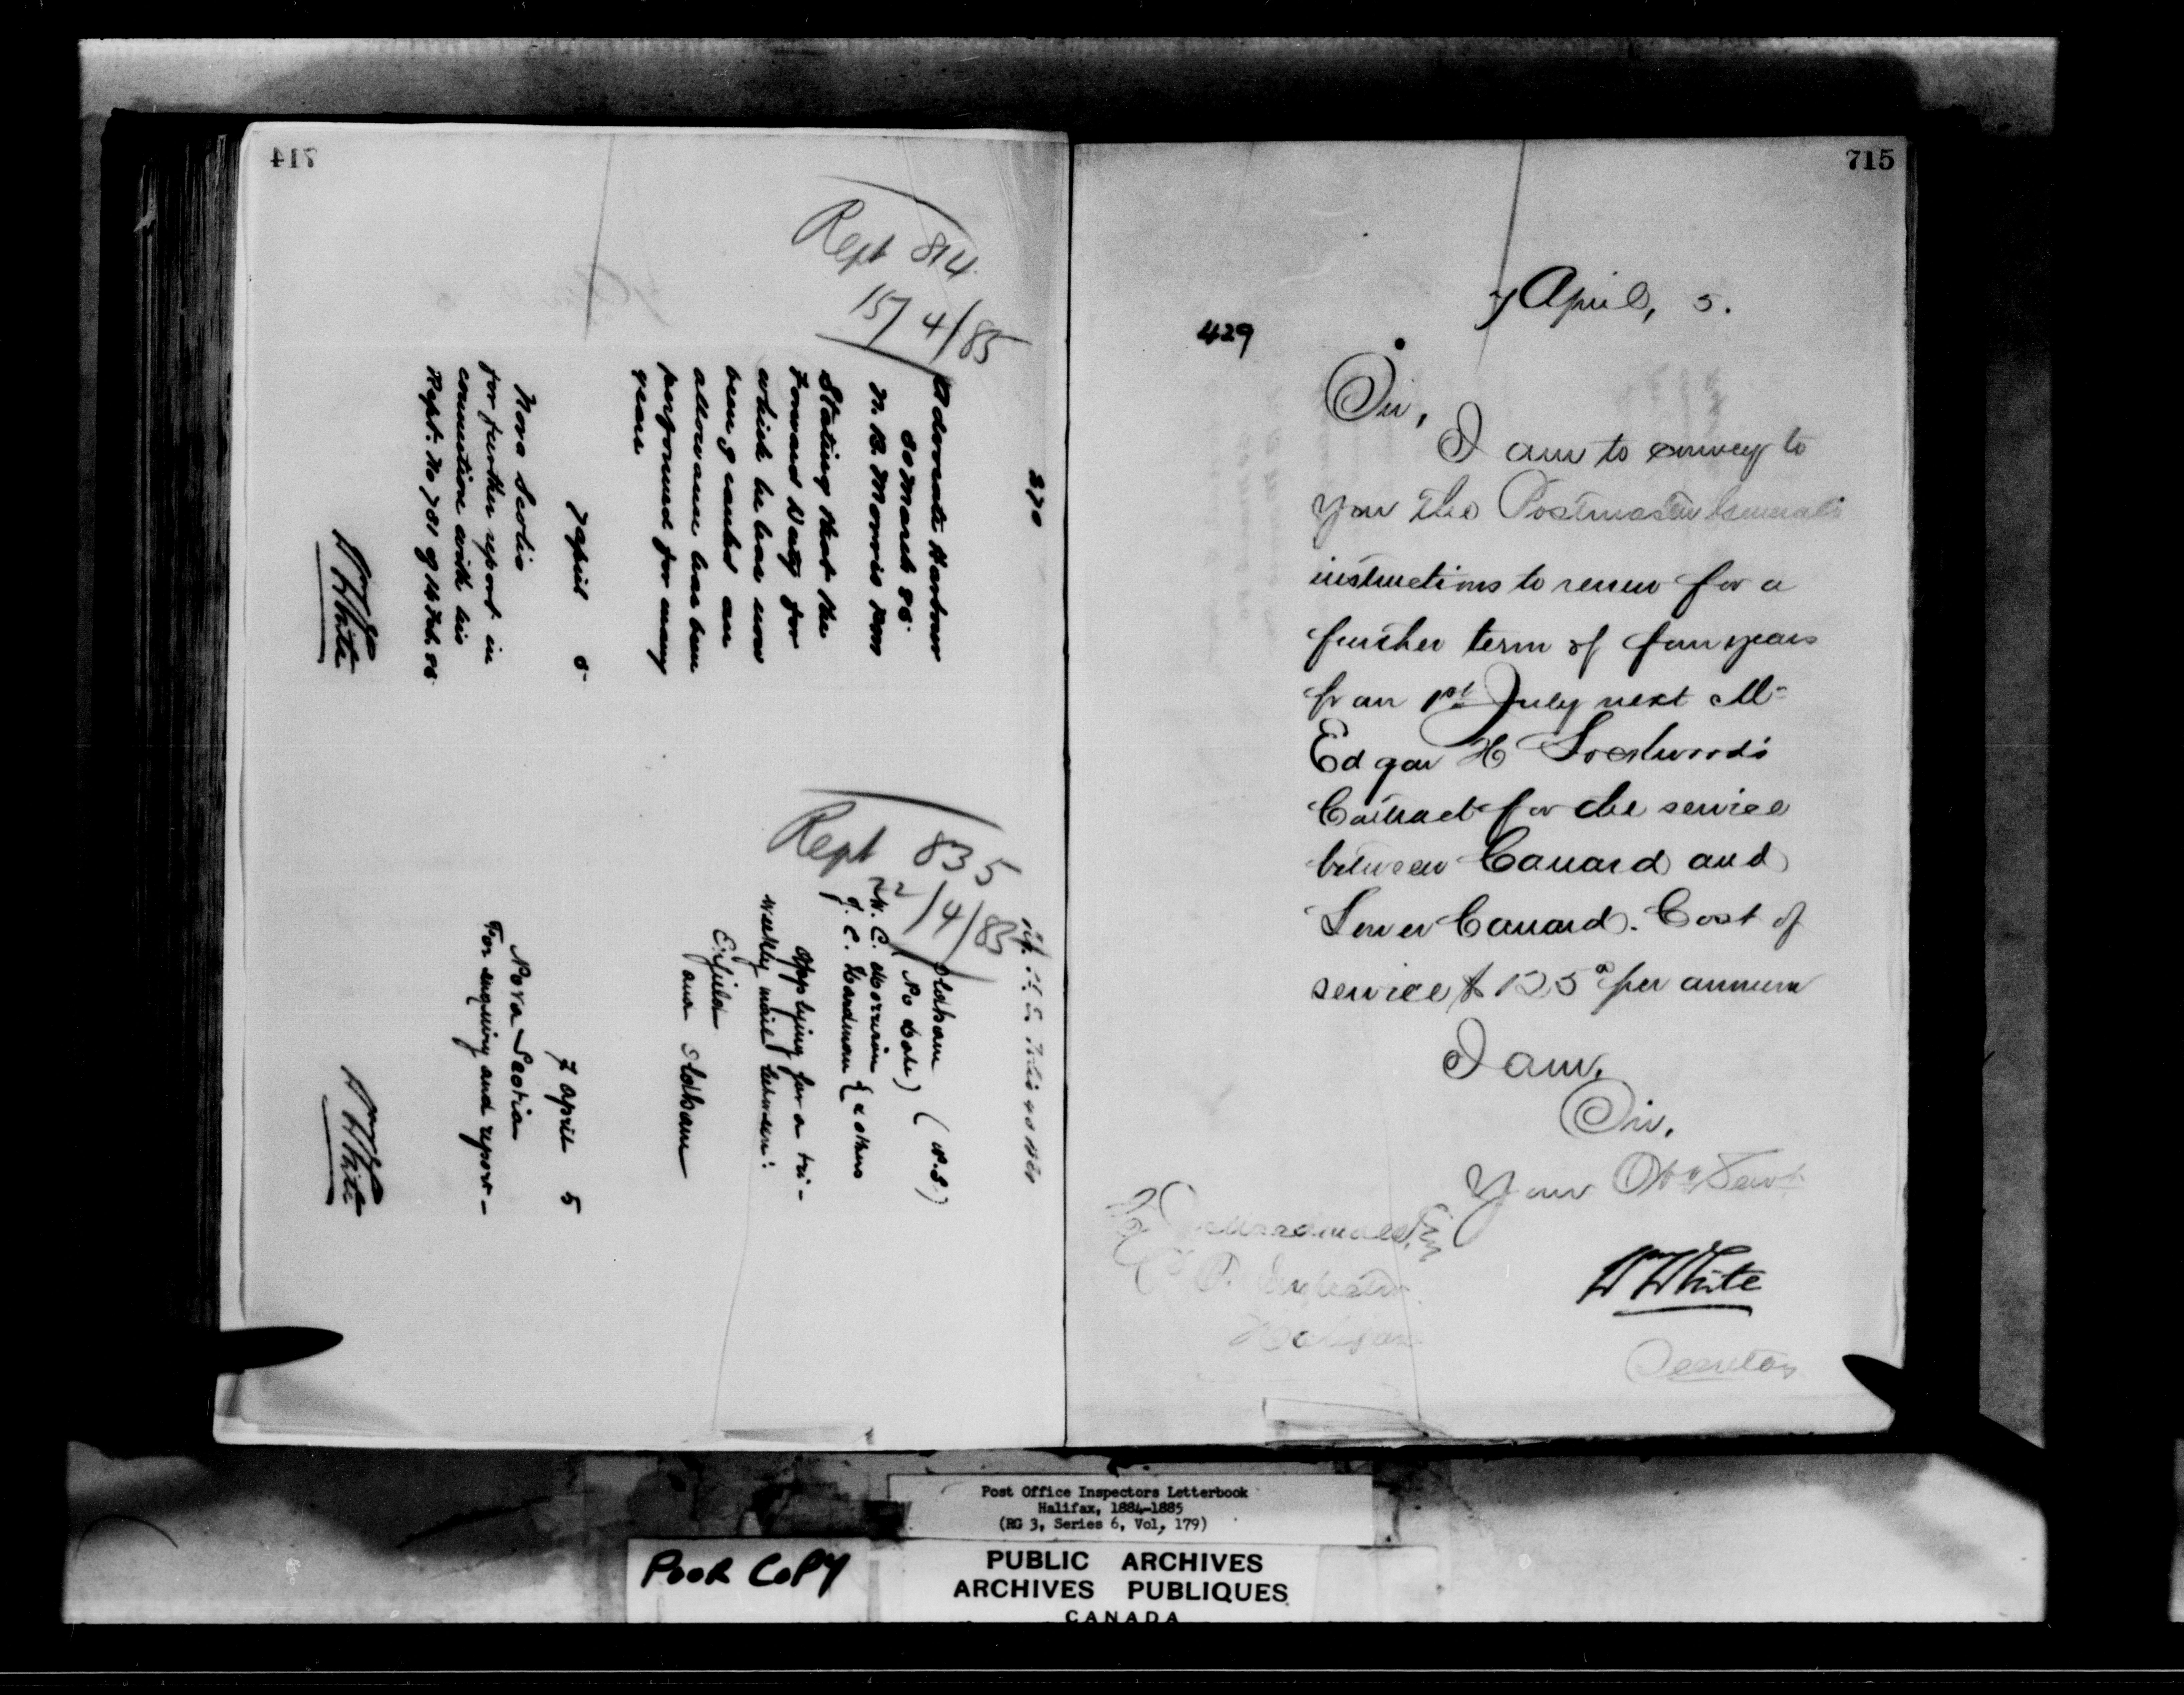 714
Rept 814
15/4/85
370
Advocate Harbour
30 March 85.
N. B. Morris
Stating that the
Forward Duty for
which he has now
been granted an
allowance has been
performed for many
years
7 April 5
Nova Scotia
for further report in
connection with his
Rept. No 781 of 14 Feb. 85.
W White
Rept 835
22/4/85
Oldham (N.S.)
(No date)
J. C. Hardman & others
Applying for a tri-
weekly mail between:
Enfield
and Oldham
7 April 5
Nova Scotia
For enquiry and report-
W White
715
7 April, 5.
429
Sir,
I am to convey to
you the Postmaster Generals
instructions to renew for a
further term of four years
from 1st July next Mr
Edgar H Lockwood's
Contract for the service
between Canard and
Lower Canard. Cost of
service $ 125 per annum
I am,
Sir,
Your Obt Servt
W White
Secretary
P. O. Inspector
Halifax
Post Office Inspectors Letterbook
Halifax, 1884-1885
(RG 3, Series 6, Vol, 179)
POOR COPY
PUBLIC ARCHIVES
ARCHIVES PUBLIQUES
CANADA